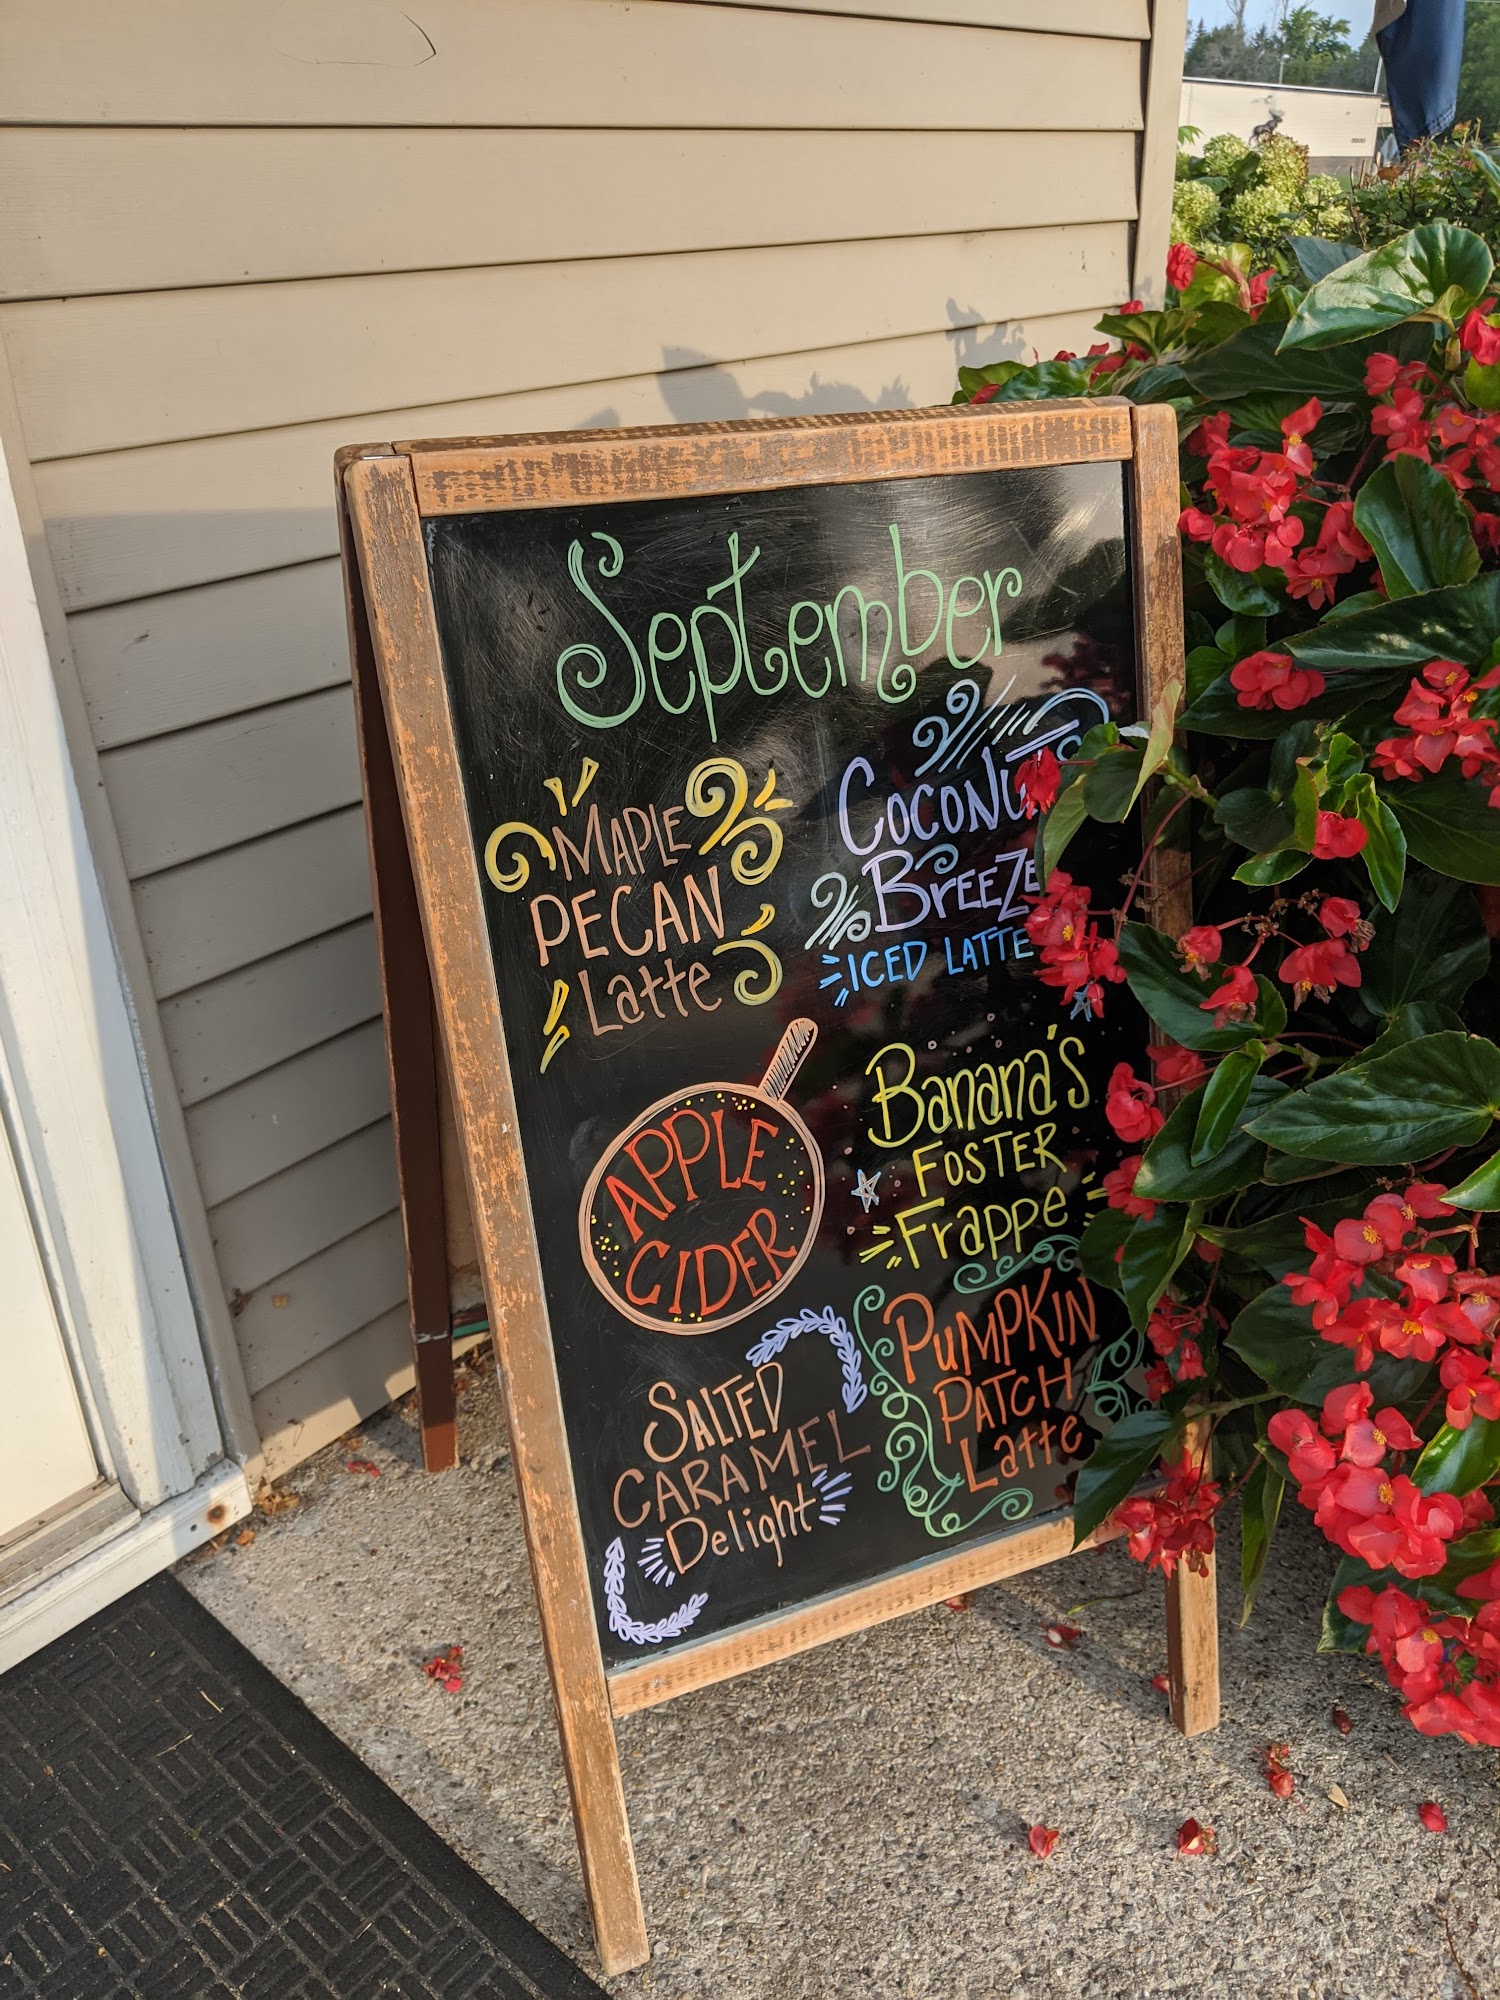 September
MAPLE
PECAN
Latte
COCONUT
BREEZE
ICED LATTE
APPLE
CIDER
Banana's
FOSTER
Frappe
SALTED
CARAMEL
Delight
PUMPKIN
PATCH
Latte